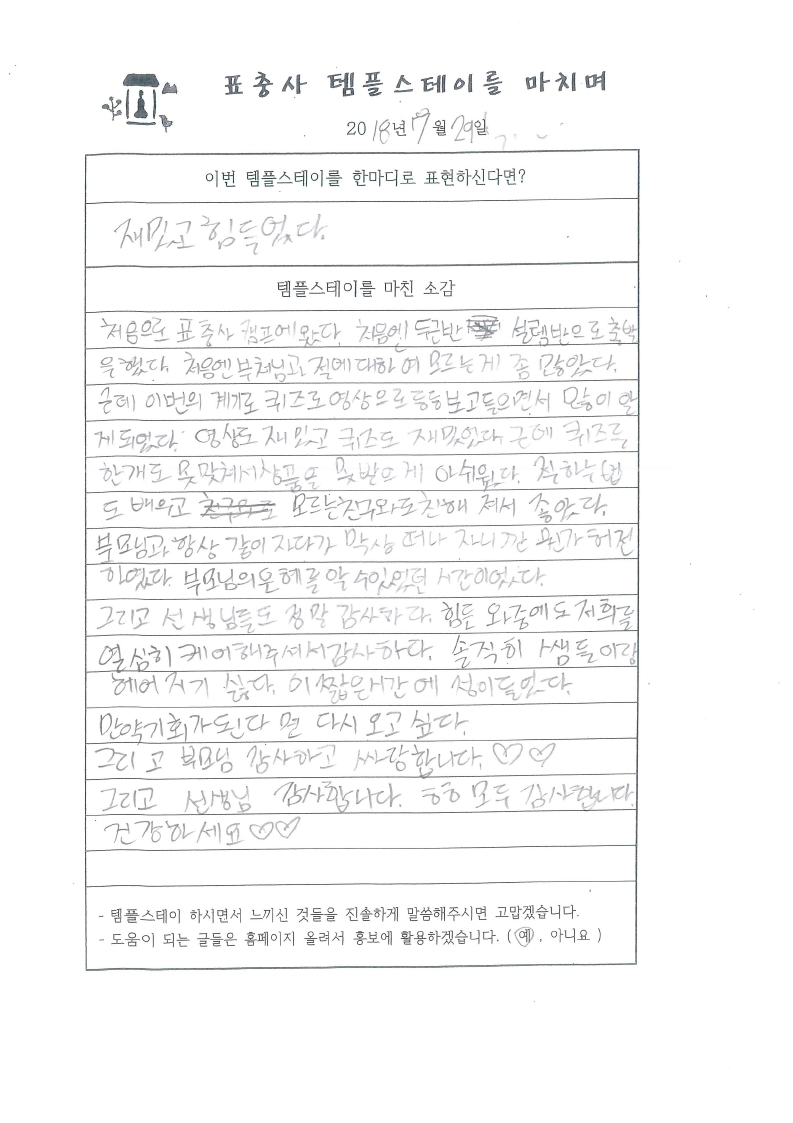 표충사 템플스테이를 마치며
2018년 7월 29일
이번 템플스테이를 한마디로 표현하신다면?
재밌고 힘들었다.
템플스테이를 마친 소감
처음으로 표충사 캠프에 왔다. 처음엔 두근반 설렘반으로 출발
을 했다. 처음엔 부처님고 절에 대하여 모르는게 좀 많았다.
근데 이번의 계기로 퀴즈로 영상으로 등등 보고 들으면서 많이 알
게되었다. 영상도 재밌고 퀴즈도 재밌었다 근데 퀴즈를
한개도 못맞춰서 상품을 못받은게 아쉬웠다. 절하는법
도 배우고 모르는친구와도 친해져서 좋았다.
부모님과 항상 같이 자다가 막상 떠나 자니깐 뭔가 허전
하였다. 부모님의 은혜를 알 수있었던 시간이었다.
그리고 선생님들도 정말 감사하다. 힘든 와중에도 저희를
열심히 케어해주셔서 감사하다. 솔직히 쌤들이랑
헤어지기 싫다. 이 짧은시간에 정이들었다.
만약 기회가 된다면 다시 오고 싶다.
그리고 부모님 감사하고 싸랑합니다. ♡♡
그리고 선생님 감사합니다. ㅎㅎ 모두 감사합니다.
건강하세요♡♡
- 템플스테이 하시면서 느끼신 것들을 진솔하게 말씀해주시면 고맙겠습니다.
- 도움이 되는 글들은 홈페이지 올려서 홍보에 활용하겠습니다. ( 예 , 아니요 )